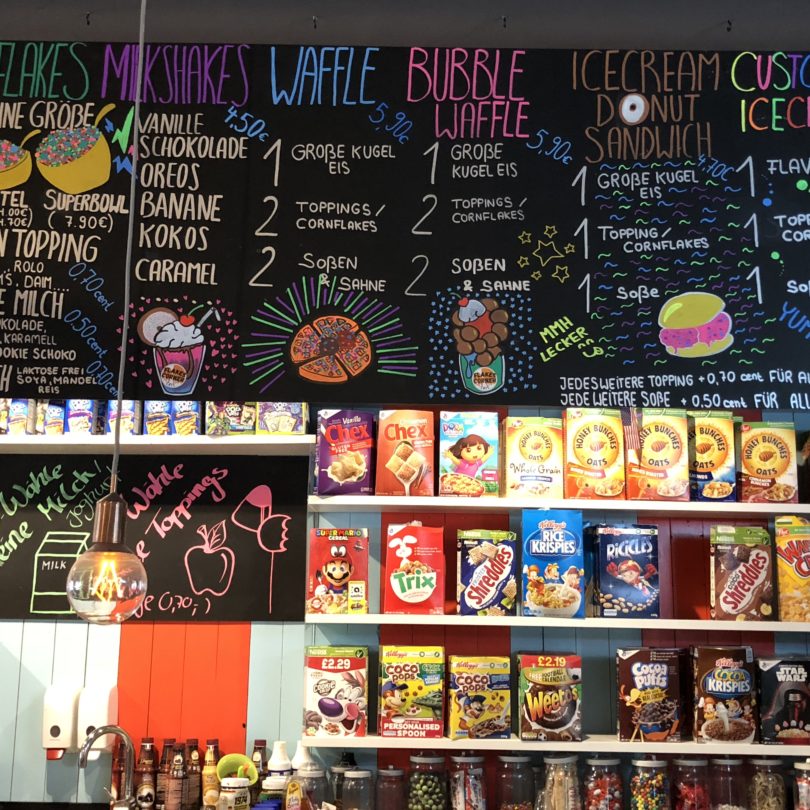 FLAKES
INE GRÖßE
SUPERBOWL
(7.90€)
N TOPPING
ROLO
DAIM....
0,70 cent
E MILCH
0,50 cent
KARAMELL
OOKIE SCHOKO
LAKTOSE FREI
SOYA, MANDEL
REIS
MILKSHAKES
4,50€
VANILLE
SCHOKOLADE
OREOS
BANANE
KOKOS
CARAMEL
FLAKES CORNER
WAFFLE
5,90€
1 GROßE KUGEL
EIS
2 TOPPINGS/
CORNFLAKES
2 SOßEN
& SAHNE
BUBBLE
WAFFLE
5,90€
1 GROßE
KUGEL EIS
2 TOPPINGS/
CORNFLAKES
2 SOßEN
& SAHNE
FLAKES CORNER
MMH
LECKER
ICECREAM
DONUT
SANDWICH
4,70€
1 GROßE KUGEL
EIS
1 TOPPING/
CORNFLAKES
1 SOßE
CUSTO
ICECR
1 FLAV
1 TOPP
COR
1 SO
YU
JEDES WEITERE TOPPING +0,70 cent FÜR AL
JEDE WEITERE SOßE +0.50 cent FÜR ALL
Wähle
eine Milch/
Joghurt
MILK
Wähle
e Toppings
0,70
Vanilla
Chex
Chex
HONEY BUNCHES
OF OATS
Whole Grain
HONEY BUNCHES
OF OATS
HONEY BUNCHES
OF OATS
HONEY BUNCHES
OF OATS
HONEY BUNCHES
OF OATS
SUPER MARIO
CEREAL
Trix
Shreddies
Kellogg's
RICE KRISPIES
RICICLES
Shreddies
£2.29
Kellogg's
COCO pops
PERSONALISED
SPOON
Kellogg's
COCO pops
£2.19
FREE FOOTBALL
CALENDAR
Weetos
COCOA PUFFS
Kellogg's
COCOA KRISPIES
STAR WARS
1974